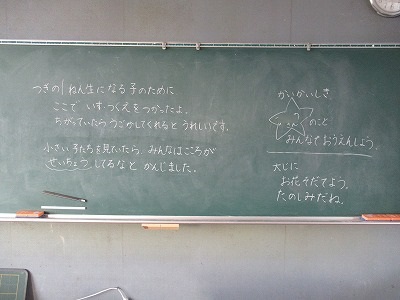 つぎの1ねん生になる子のために
ここで いす つくえをつかったよ。
ちがっていたら うごかしてくれると うれしいです。
小さい子たちを見ていたら、みんなはこころが
せいちょうしてるなと かんじました。
かいかいしき
のこと
みんなでおうえんしよう。
大じに
お花そだてよう。
たのしみだね。